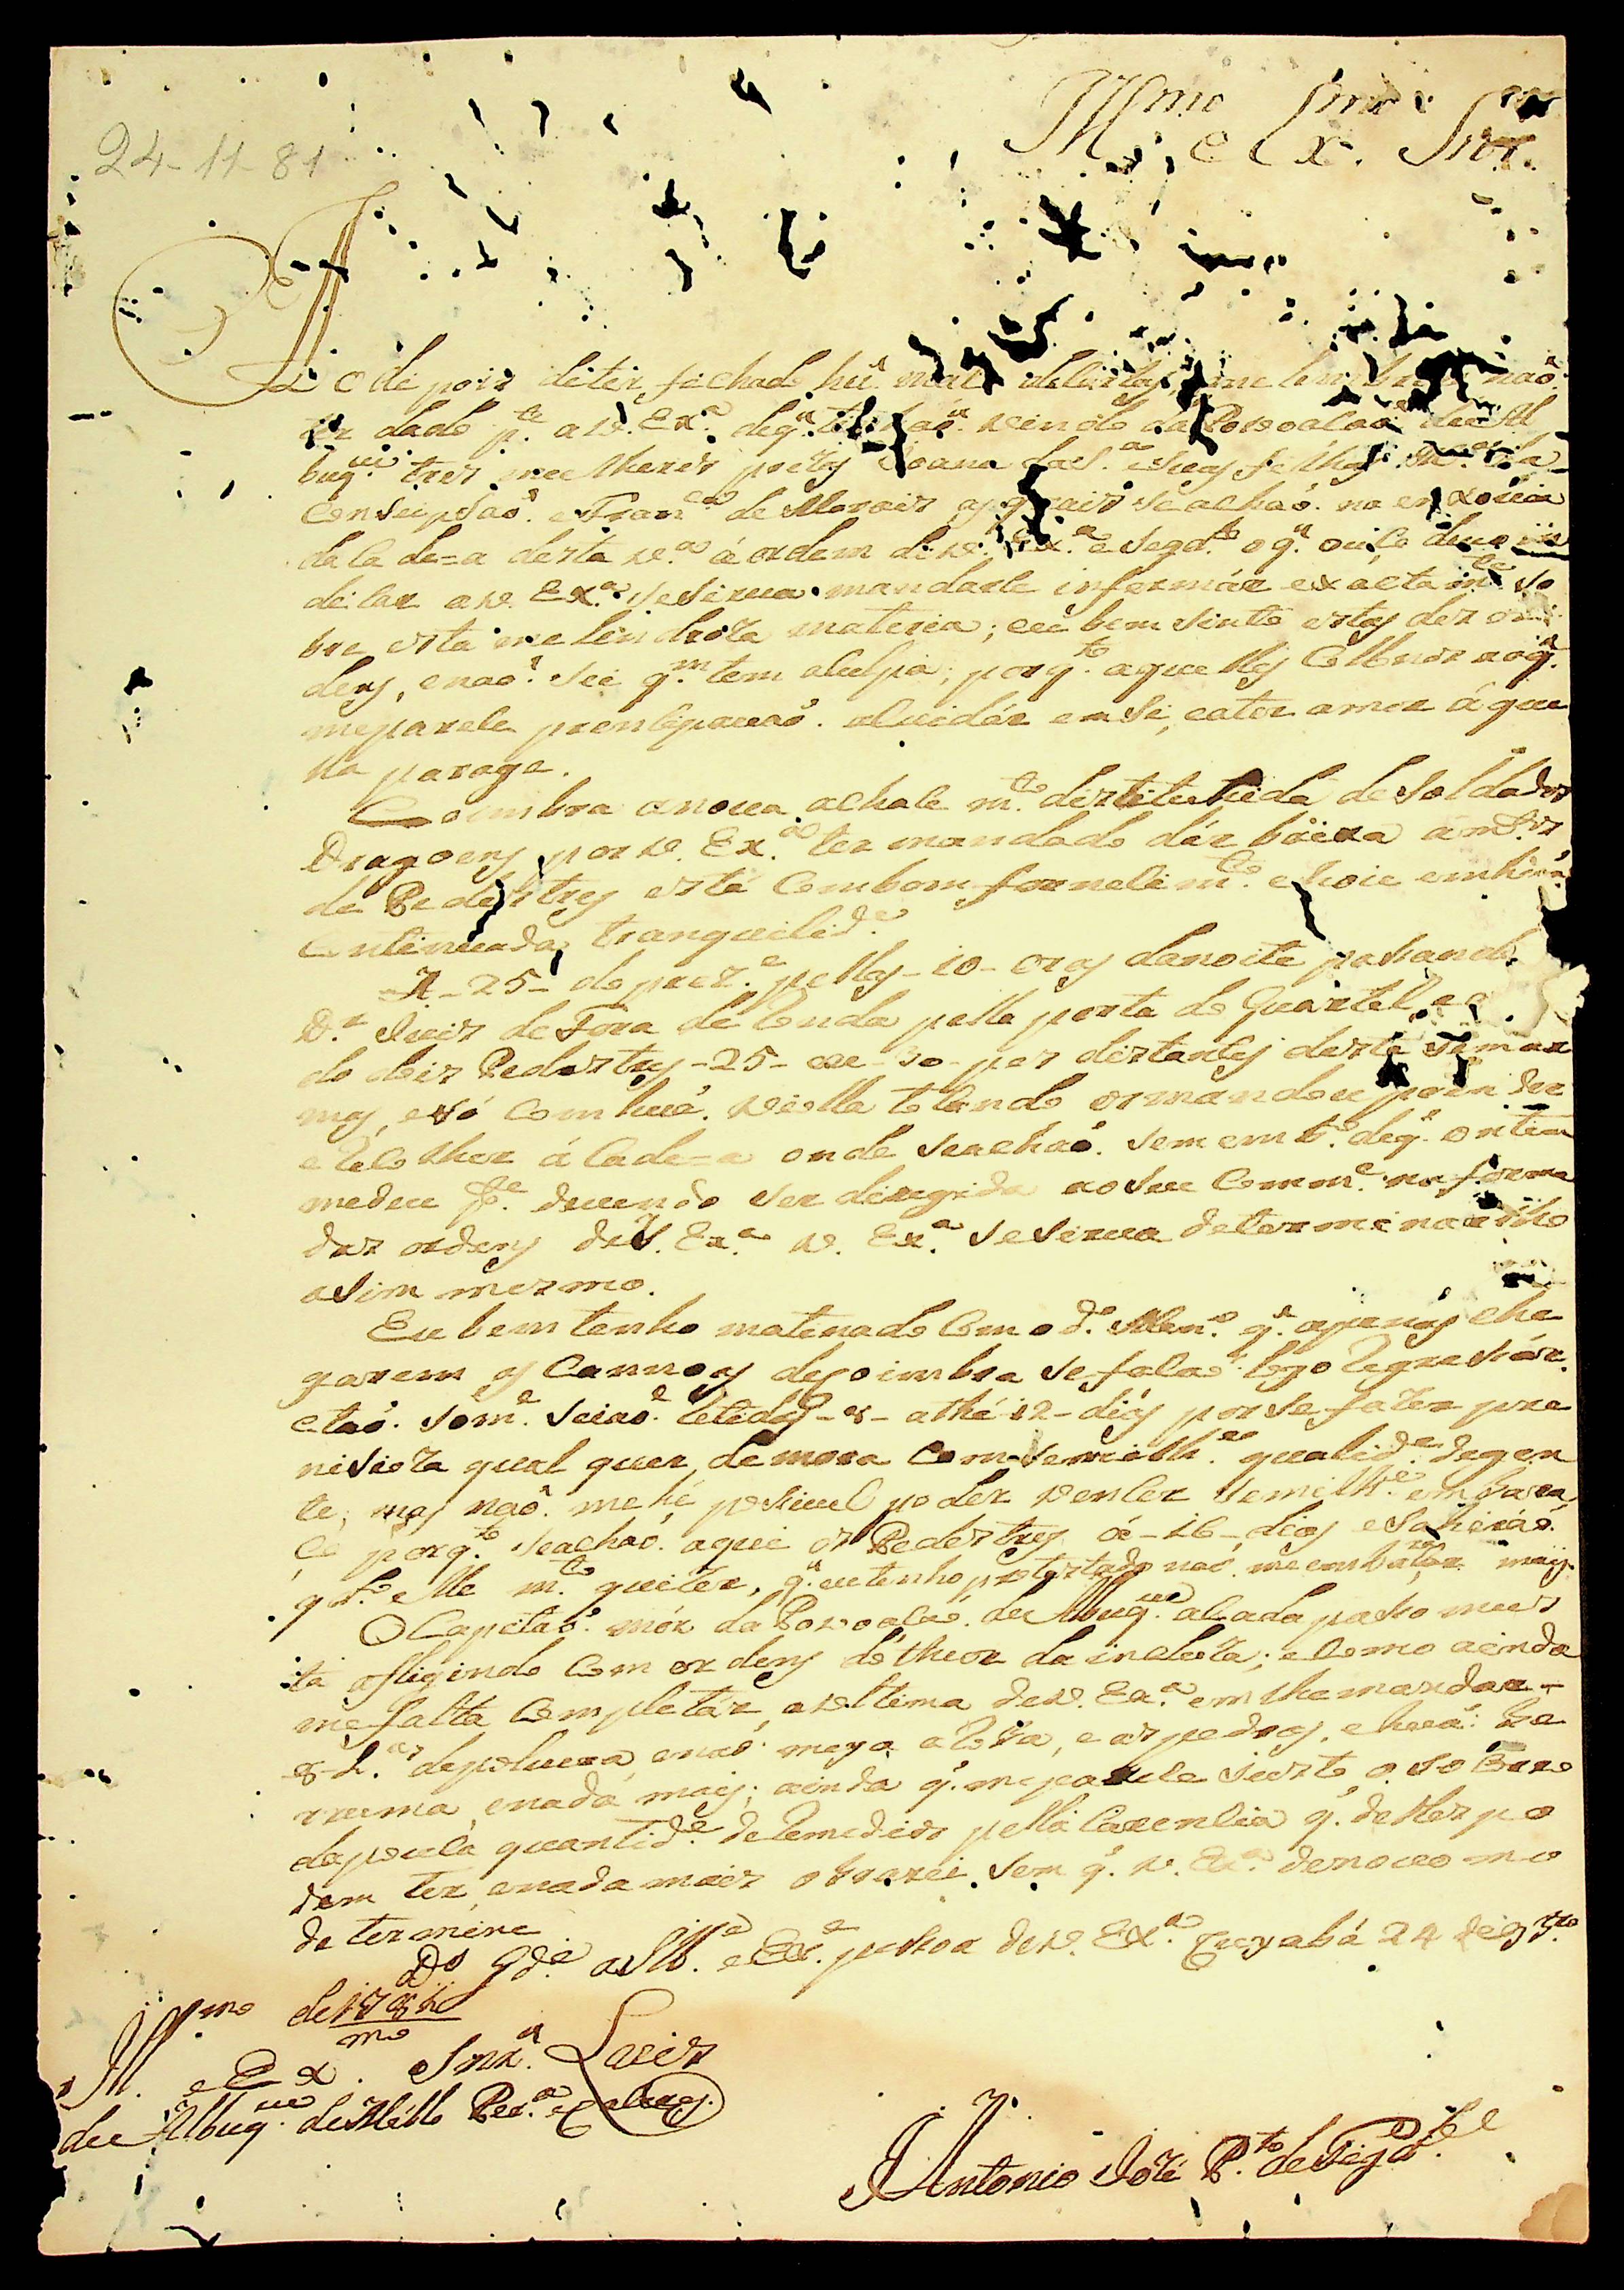 24-11-81
Ill.mo e Ex.mo Snr.
Ao depois de ter fechado huã mala de Cartas, me lembro não
ter dado p.te a V. Ex.a de q. tinhão vindo da Povoação de Al
buq.ue tres mulheres pretas Joana da S.a e suas filhas da
Conseipsaõ. e Fran.ca de Morais as quais se achaõ. na enxovia
da Cade=a desta V.a á ordem de V. Ex.a e segd.o o q. ouço devo
deicar a V. Ex.a se sirva mandarse informár exactam.te so
bre esta melindroza materia; eu bem sinto estas dezor
dens, e naõ. sei q.m tem a culpa; porq.to aquelles Collonos no q.
me parece prencipavaõ. a cuidár em si, e a ter amor á que
lla parage.
Coimbra a nova achace m.to distituhida de Soldados
Dragoens por V. Ex.a ter mandado dár baixa a m.tos
de Pedestres está com bom fornecim.to e hoie em huã
continuada tranquelid.e
A-25- do prez.e pellas-10-oras da noite pasando
D.r Juis de Fora de Ronda pella porta do Quartel
do dois Pedestres-25-ou-30-pes distantes desta sem ar
mas, e só com huã. violla tocando os mandou prender
e recolher á Cade=a onde se achaõ. sem em t.o de q. ontem
me deu p.e devendo ser deregida ao seu Comm.e na forma
das ordens de S. Ex.a V. Ex.a se sirva determinar lho
asim mesmo.
Eu bem tenho matinado com o d.o Alm.o q. apenas che
garem as Cannoas de Coimbra se fasaõ logo regresár.
e taõ. som.e seiaõ. detidas-8-athé 12-dias por se fazer pre
nisioza qual quer demora com semilh.e qualid.e de gen
te, mas naõ. me hé posivel poder vencer semilh.e embara
ço porq.to se achaõ. aqui os Pedestres á-16-dias e sahiráõ.
qd.o elle m.to quizer, q. eu tenho protestado naõ. me embaraçar mais.
O Capitaõ. mór da Povoaçaõ. de Albuq.ue a cada paso mees
tá afligindo com ordens do theor da incluza; e como ainda
me falta completár a ultima de V. Ex.a em lhe mandar-
8-L.as de polvora, e naõ meya aroba, e as pedras, e huã. be
rruma e nada mais; ainda q. me parece iusto o so Coro
da pouca quantid.e de remedios pella Carencia q. delles po
dem ter, e nada mais obrarei sem q. V. Ex.a de novo mo
determine
D.s g.de a Ill.a e Ex.a pesoa de V. Ex.a Cuyabá 24 de 9br.o
de 1781
Ill.mo e Ex.mo Snr. Luis
de Albuq.ue de Mello Per.a e Caceres.
Antonio José P.to de Figd.o